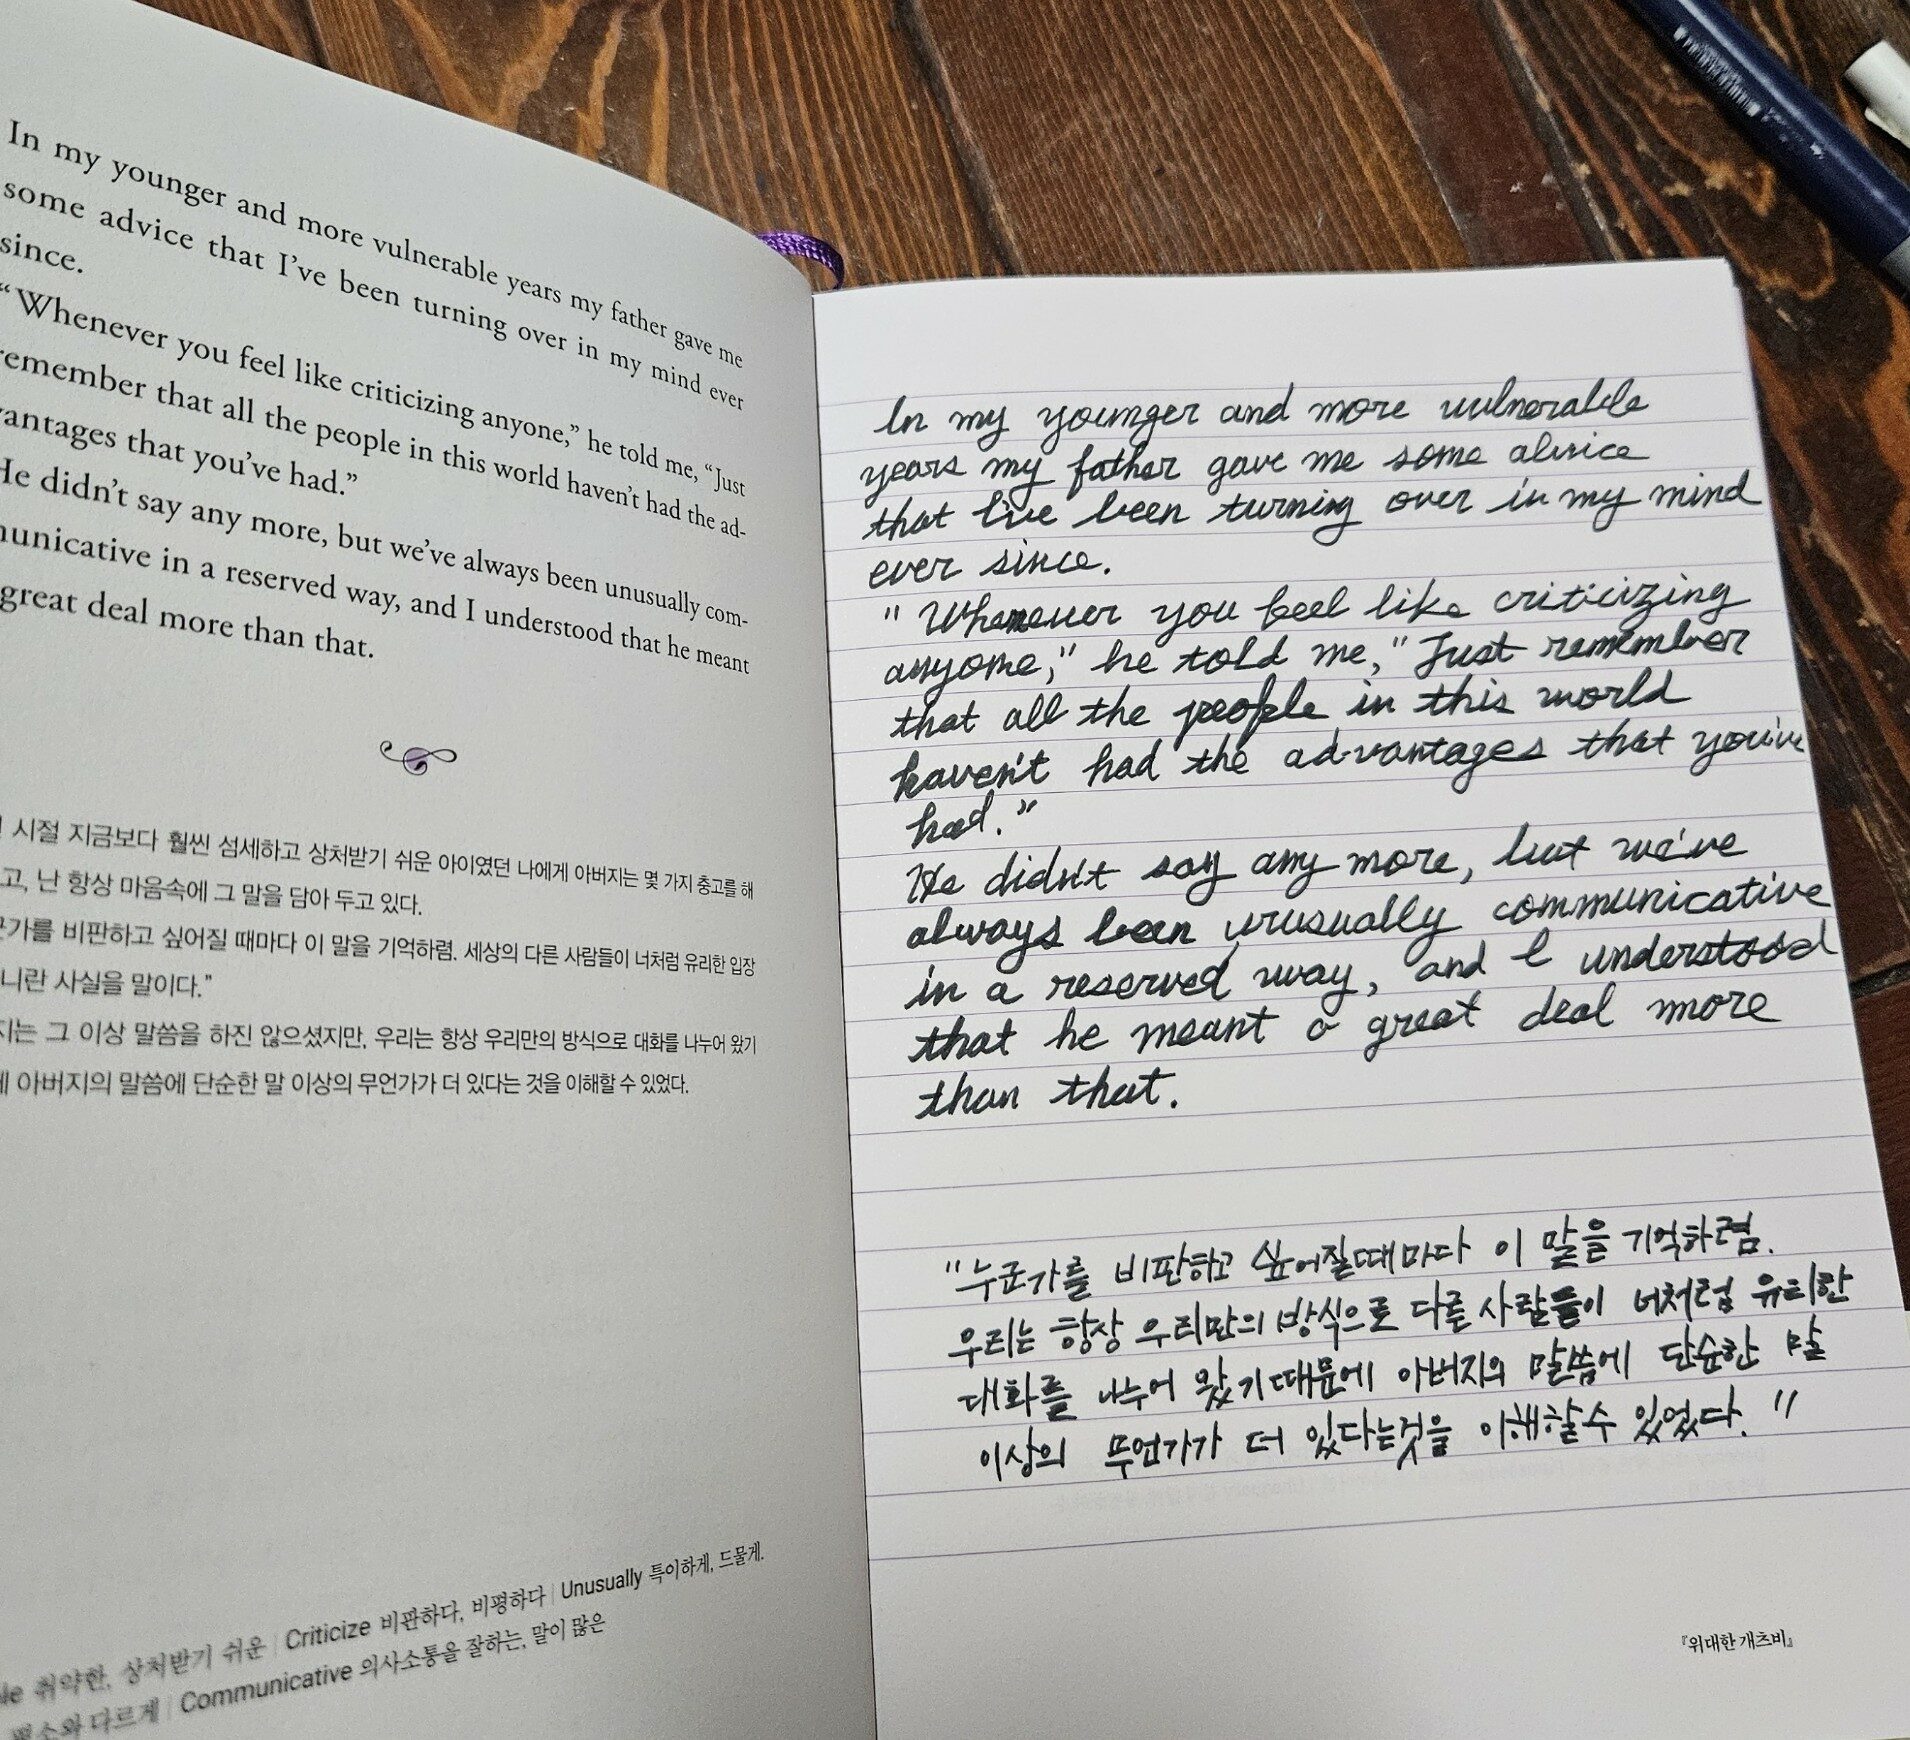 In my younger and more vulnerable years my father gave me
some advice that I've been turning over in my mind ever
since.
“Whenever you feel like criticizing anyone,” he told me, “Just
remember that all the people in this world haven't had the ad-
vantages that you've had.”
He didn't say any more, but we've always been unusually com-
municative in a reserved way, and I understood that he meant
great deal more than that.
시절 지금보다 훨씬 섬세하고 상처받기 쉬운 아이였던 나에게 아버지는 몇 가지 충고를 해
고, 난 항상 마음속에 그 말을 담아 두고 있다.
군가를 비판하고 싶어질 때마다 이 말을 기억하렴. 세상의 다른 사람들이 너처럼 유리한 입장
니란 사실을 말이다.”
지는 그 이상 말씀을 하진 않으셨지만, 우리는 항상 우리만의 방식으로 대화를 나누어 왔기
에 아버지의 말씀에 단순한 말 이상의 무언가가 더 있다는 것을 이해할 수 있었다.
취약한, 상처받기 쉬운 | Criticize 비판하다, 비평하다 | Unusually 특이하게, 드물게.
평소와 다르게 | Communicative 의사소통을 잘하는, 말이 많은
In my younger and more vulnerable
years my father gave me some advice
that I've been turning over in my mind
ever since.
"Whenever you feel like criticizing
anyone," he told me, "Just remember
that all the people in this world
haven't had the ad-vantages that you've
had."
He didn't say any more, but we've
always been unusually communicative
in a reserved way, and I understood
that he meant a great deal more
than that.
"누군가를 비판하고 싶어질때마다 이 말을 기억하렴.
우리는 항상 우리만의 방식으로 다른 사람들이 너처럼 유리한
대화를 나누어 왔기때문에 아버지의 말씀에 단순한 말
이상의 무언가가 더 있다는것을 이해할수 있었다."
『위대한 개츠비』